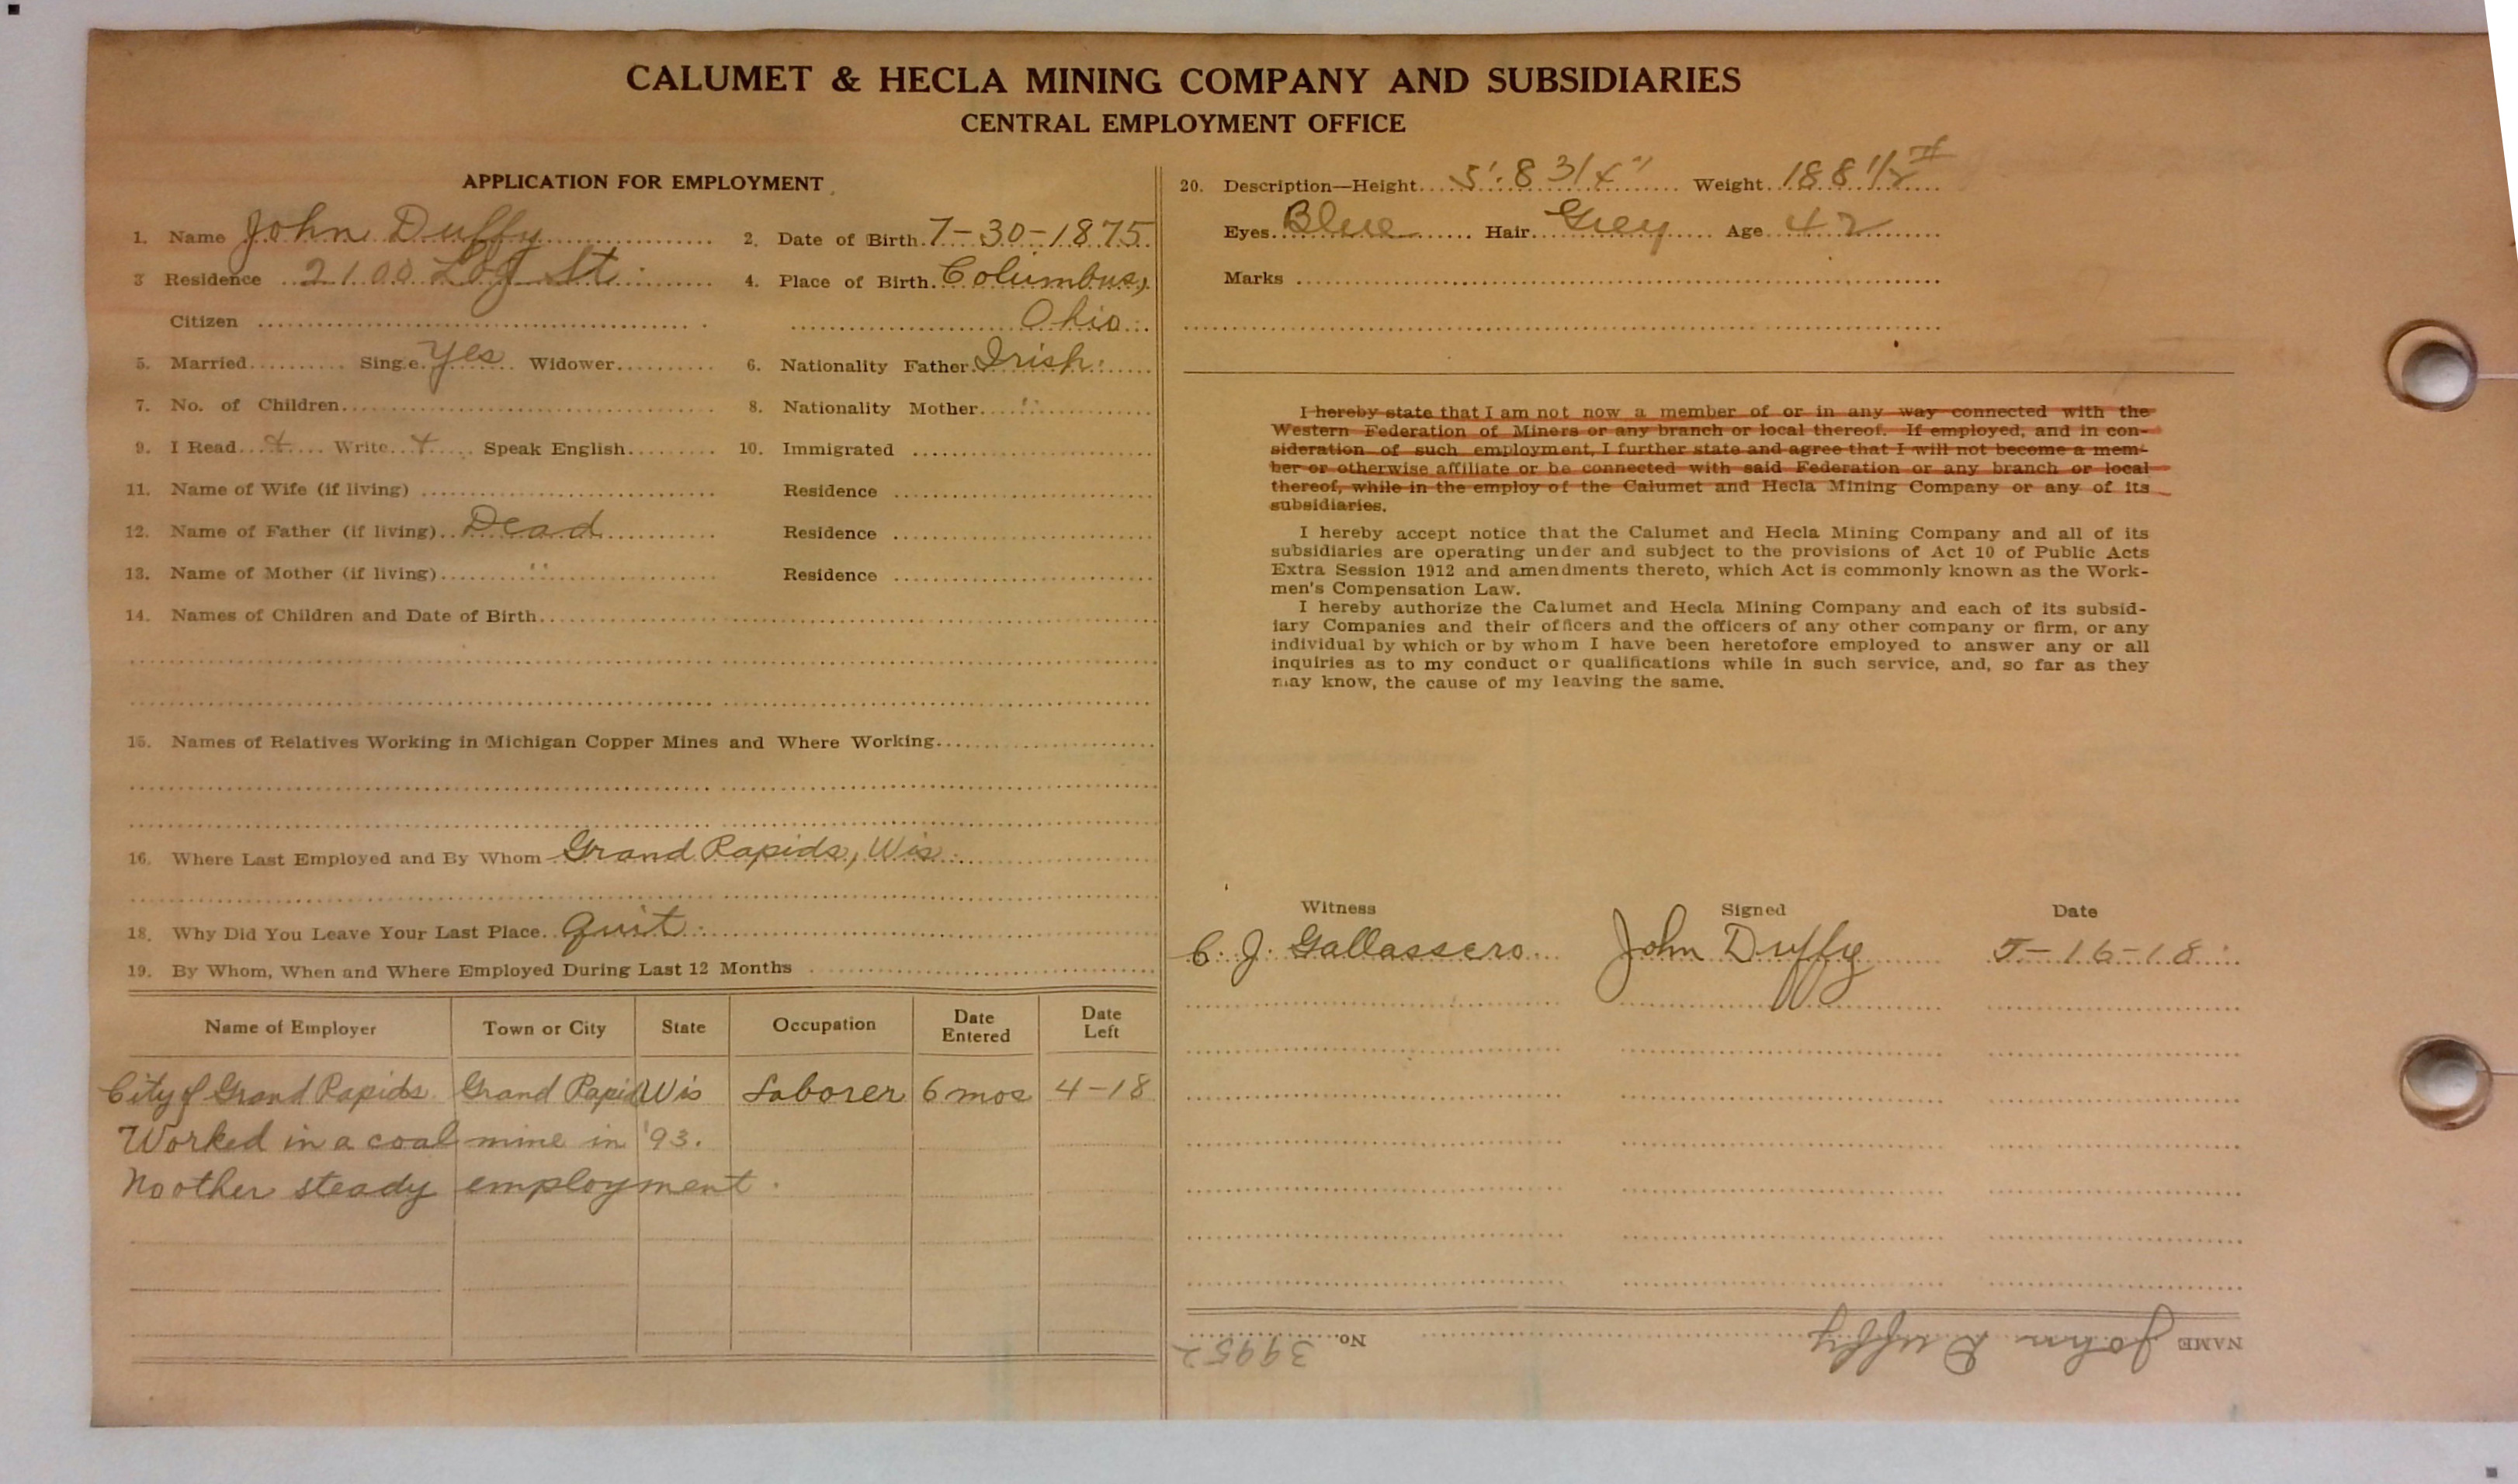 CALUMET & HECLA MINING COMPANY AND SUBSIDIARIES
CENTRAL EMPLOYMENT OFFICE
APPLICATION FOR EMPLOYMENT
1. Name John Duffy
2. Date of Birth 7-30-1875
3 Residence 2100 Log St.
4. Place of Birth Columbus,
Citizen
Ohio
5. Married Single Yes Widower
6. Nationality Father Irish
7. No. of Children
8. Nationality Mother "
9. I Read + Write + Speak English
10. Immigrated
11. Name of Wife (if living)
Residence
12. Name of Father (if living) Dead
Residence
13. Name of Mother (if living) "
Residence
14. Names of Children and Date of Birth
15. Names of Relatives Working in Michigan Copper Mines and Where Working
16. Where Last Employed and By Whom Grand Rapids, Wis.
18. Why Did You Leave Your Last Place Quit.
19. By Whom, When and Where Employed During Last 12 Months
Name of Employer Town or City State Occupation Date Entered Date Left
City of Grand Rapids Grand Rapids Wis Laborer 6 mos 4-18
Worked in a coal mine in '93.
No other steady employment.
20. Description—Height 5'.8 3/4" Weight 188 1/2 #
Eyes Blue Hair Grey Age 42
Marks
I hereby state that I am not now a member of or in any way connected with the
Western Federation of Miners or any branch or local thereof. If employed, and in con-
sideration of such employment, I further state and agree that I will not become a mem-
ber or otherwise affiliate or be connected with said Federation or any branch or local
thereof, while in the employ of the Calumet and Hecla Mining Company or any of its
subsidiaries.
I hereby accept notice that the Calumet and Hecla Mining Company and all of its
subsidiaries are operating under and subject to the provisions of Act 10 of Public Acts
Extra Session 1912 and amendments thereto, which Act is commonly known as the Work-
men's Compensation Law.
I hereby authorize the Calumet and Hecla Mining Company and each of its subsid-
iary Companies and their officers and the officers of any other company or firm, or any
individual by which or by whom I have been heretofore employed to answer any or all
inquiries as to my conduct or qualifications while in such service, and, so far as they
may know, the cause of my leaving the same.
Witness Signed Date
C. J. Gallassero John Duffy 5-16-18
NAME John Duffy No. 39952